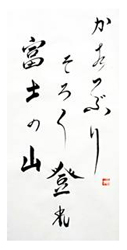 かたつぶり
そろ〱登れ
富士の山